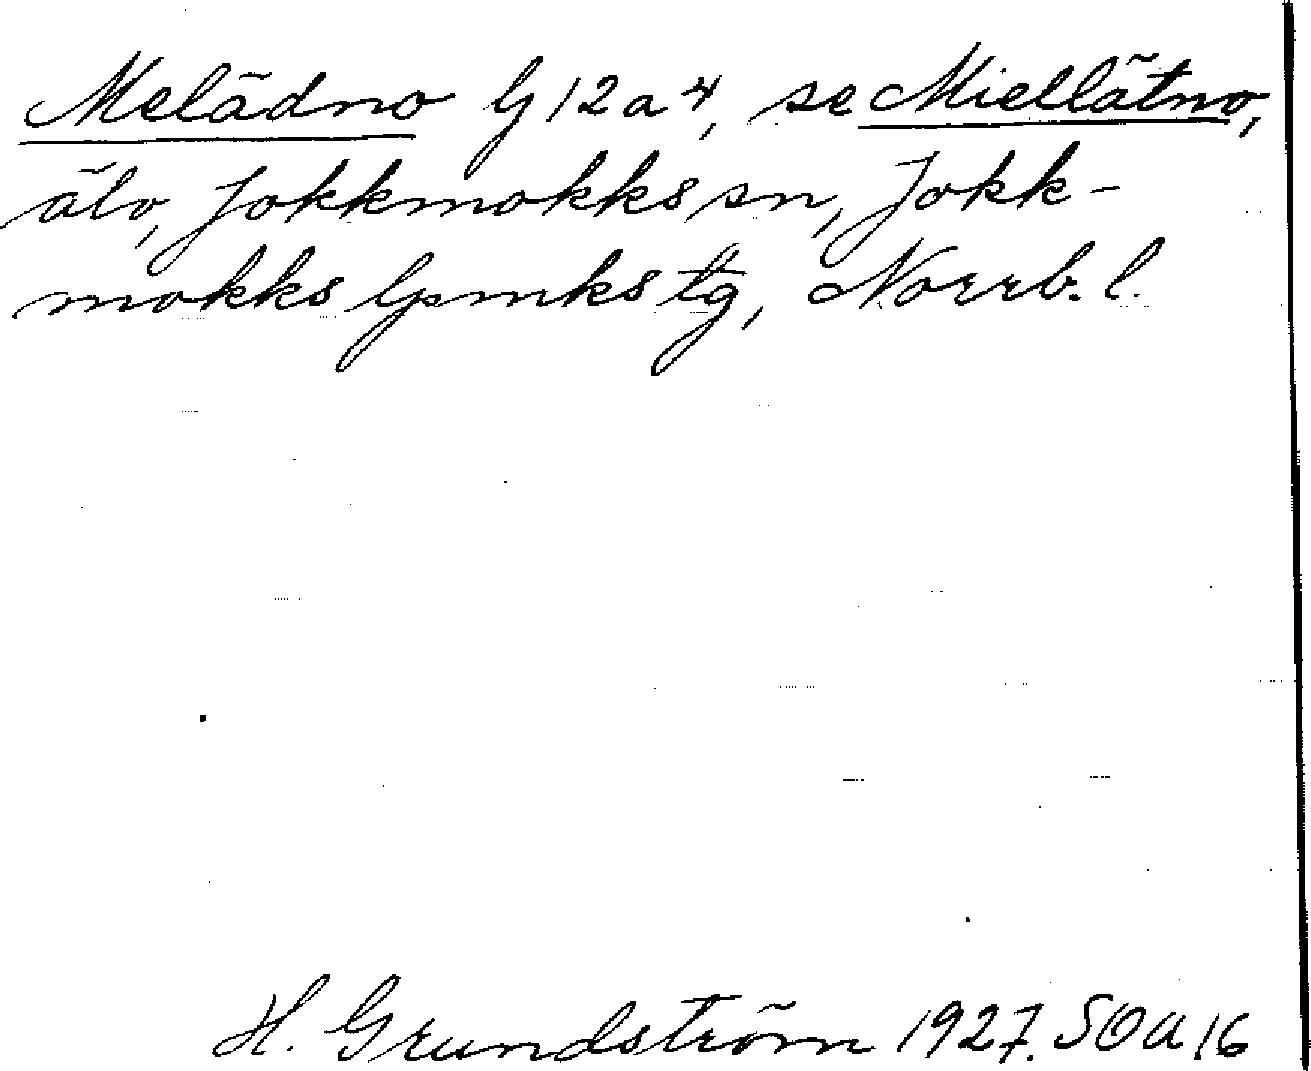 Melädno G 12 a 4, se Miellätno,
älv, Jokkmokks sn, Jokk-
mokks lpmks tg, Norrb. l.
H. Grundström 1927. SOa 16